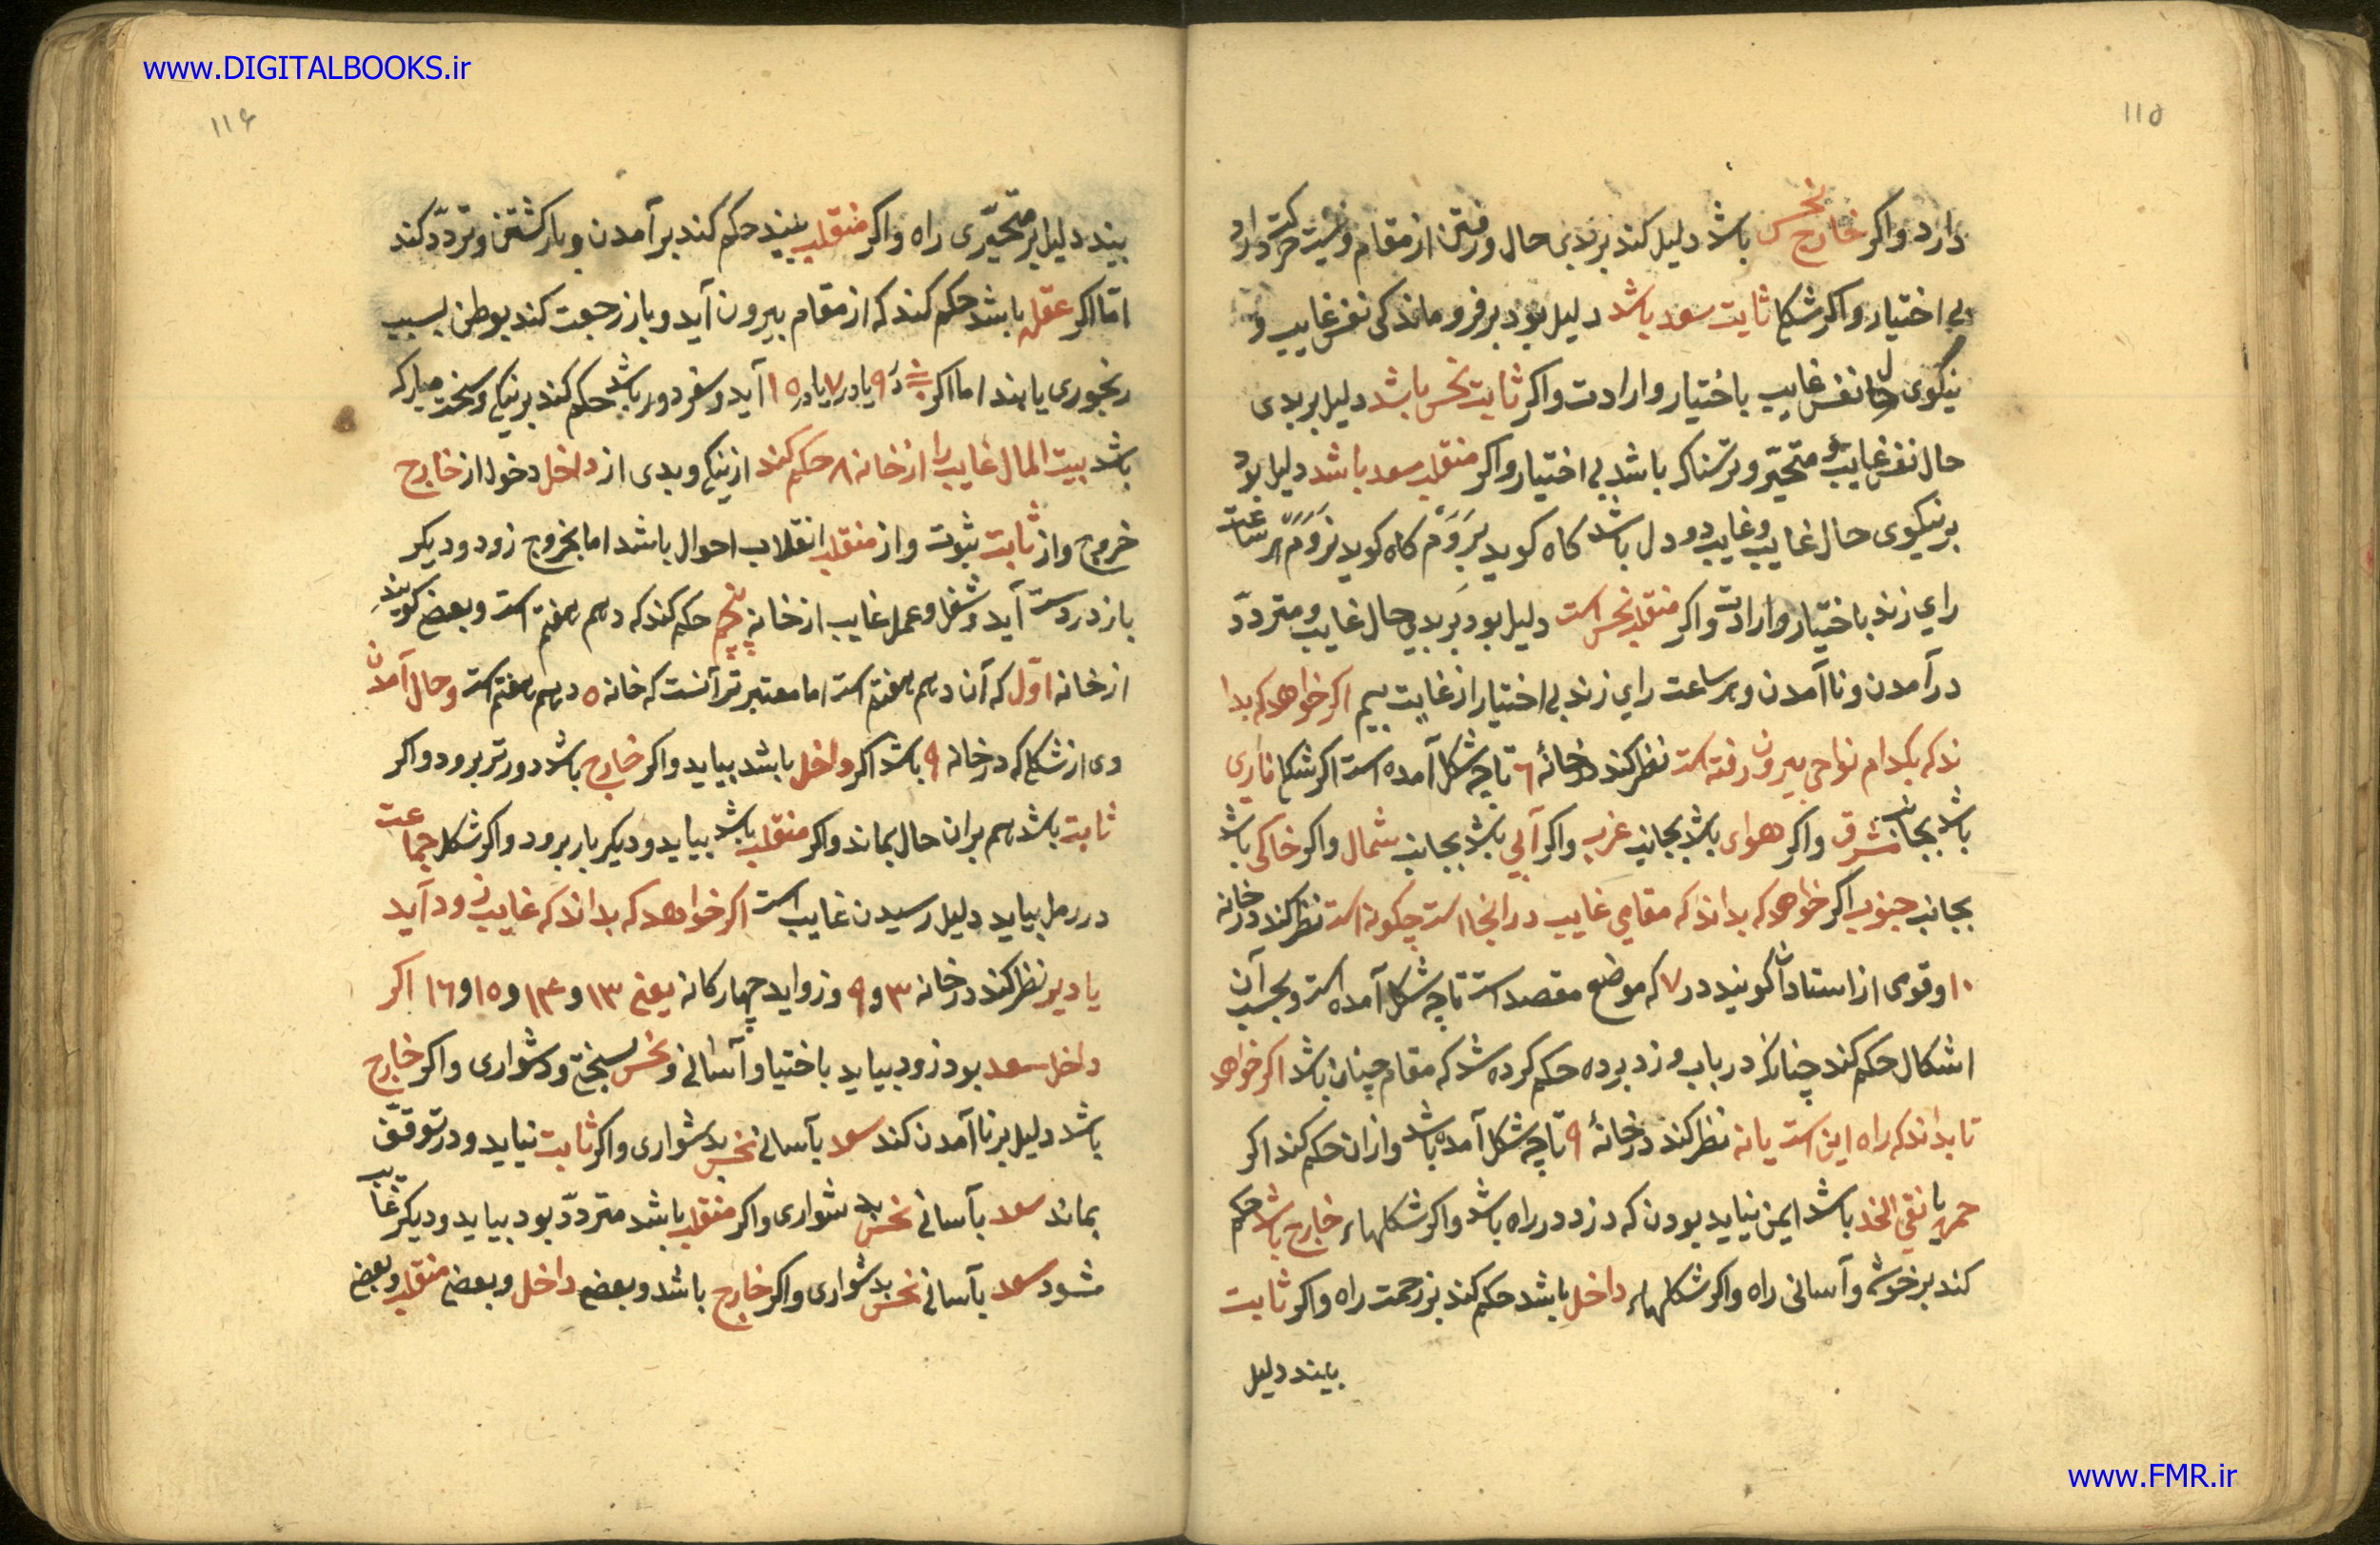 www.DIGITALBOOKS.ir
۱۱۵
دارد و اکر خارج نحس باشد دلیل کند بر بدی حال و رفتن از مقام و نیت حرکت دارد
بی اختیار و اکر شکل ثابت سعد باشد دلیل بود بر فرو ماندکی نفس غایب و
نیکوی حال نفس غایب باختیار و ارادت و اکر ثابت نحس باشد دلیل بر بدی
حال نفس غایب و متحیّر و ترسناک باشد بی اختیار و اکر منقلب سعد باشد دلیل بود
بر نیکوی حال غایب و غایب دو دل باشد کاه کوید بروم کاه کوید نروم هر ساعت
رای زند باختیار و ارادت و اکر منقلب نحس است دلیل بود بر بدی حال غایب و متردّد
در آمدن و نا آمدن و هر ساعت رای زند بی اختیار از غایت بیم اکر خواهد که بدا
ند که بکدام نواحی بیرون رفته است نظر کند در خانهٔ ٦ تا چه شکل آمده است اکر شکل ناری
باشد بجانب مشرق و اکر هوای باشد بجانب غرب و اکر آبی باشد بجانب شمال و اکر خاکی باشد
بجانب جنوب اکر خواهد که بداند که مقامی غایب در انجا است چکونه است نظر کند در خانه
۱۰ و قومی از استادان کویند در ۷ که موضع مقصد است تا چه شکل آمده است و بحسب آن
اشکال حکم کند چنانکه در باب دزد برده حکم کرده شد که مقام چنان باشد اکر خواهد
تا بداند که راه ایمن است یا نه نظر کند در خانهٔ ۹ تا چه شکل آمده باشد و از ان حکم کند اکر
حمره یا نقی الخد باشد ایمن نباید بودن که دزد در راه باشد و اکر شکلهاء خارج باشد حکم
کند بر خوشی و آسانی راه و اکر شکلهاء داخل باشد حکم کند بر زحمت راه و اکر ثابت
بیند دلیل
۱۱۶
بیند دلیل بر متحیّری راه و اکر منقلب بیند حکم کند بر آمدن و باز کشتن و تردّد کند
امّا اکر عقله باشد حکم کند که از مقام بیرون آید و باز رجعت کند بوطن بسبب
رنجوری یا بند اما اکر در ۹ یا در ۷ یا در ۱۵ آید و سفر دور باشد حکم کند بر نیکی و سخت مبارکه
باشد بیت المال غایب را از خانه ۸ حکم کند از نیکی و بدی از داخل دخول از خارج
خروج و از ثابت ثبوت و از منقلب انقلاب احوال باشد اما بخروج زود و دیکر
باز در دست آید و شغل و عمل غایب از خانه پنجم حکم کند که دهم هفتم است و بعضی کویند
از خانه اوّل که آن دهم هفتم است اما معتبر تر آنست که خانه ٥ دهم هفتم است و حال آمدن
وی از شکلی که در خانه ۹ باشد اکر داخل باشد بیاید و اکر خارج باشد دورتر برود و اکر
ثابت باشد هم بران حال بماند و اکر منقلب باشد بیاید و دیکر بار برود و اکر شکل جماعت
در رمل بیاید دلیل رسیدن غایب است اکر خواهد که بداند که غایب زود آید
یا دیر نظر کند در خانه ۳ و ۹ و زواید چهار کانه یعنی ۱۳ و ۱۴ و ۱٥ و ۱٦ اکر
داخل سعد بود زود بیاید باختیار و آسانی و نحس بسختی و دشواری و اکر خارج
باشد دلیل بر نا آمدن کند سعد بآسانی نحس بدشواری و اکر ثابت نیاید و در توقف
بماند سعد بآسانی نحس بدشواری و اکر منقلب باشد متردّد بود بیاید و دیکر غایب
شود سعد بآسانی نحس بدشواری و اکر خارج باشد و بعضی داخل و بعضی منقلب و بعضی
www.FMR.ir